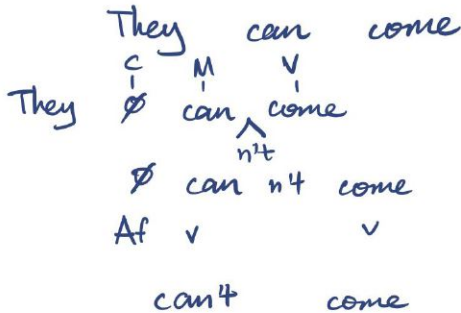 They can come
C M V
They Ø can come
n't
Ø can n't come
Af v v
can't come